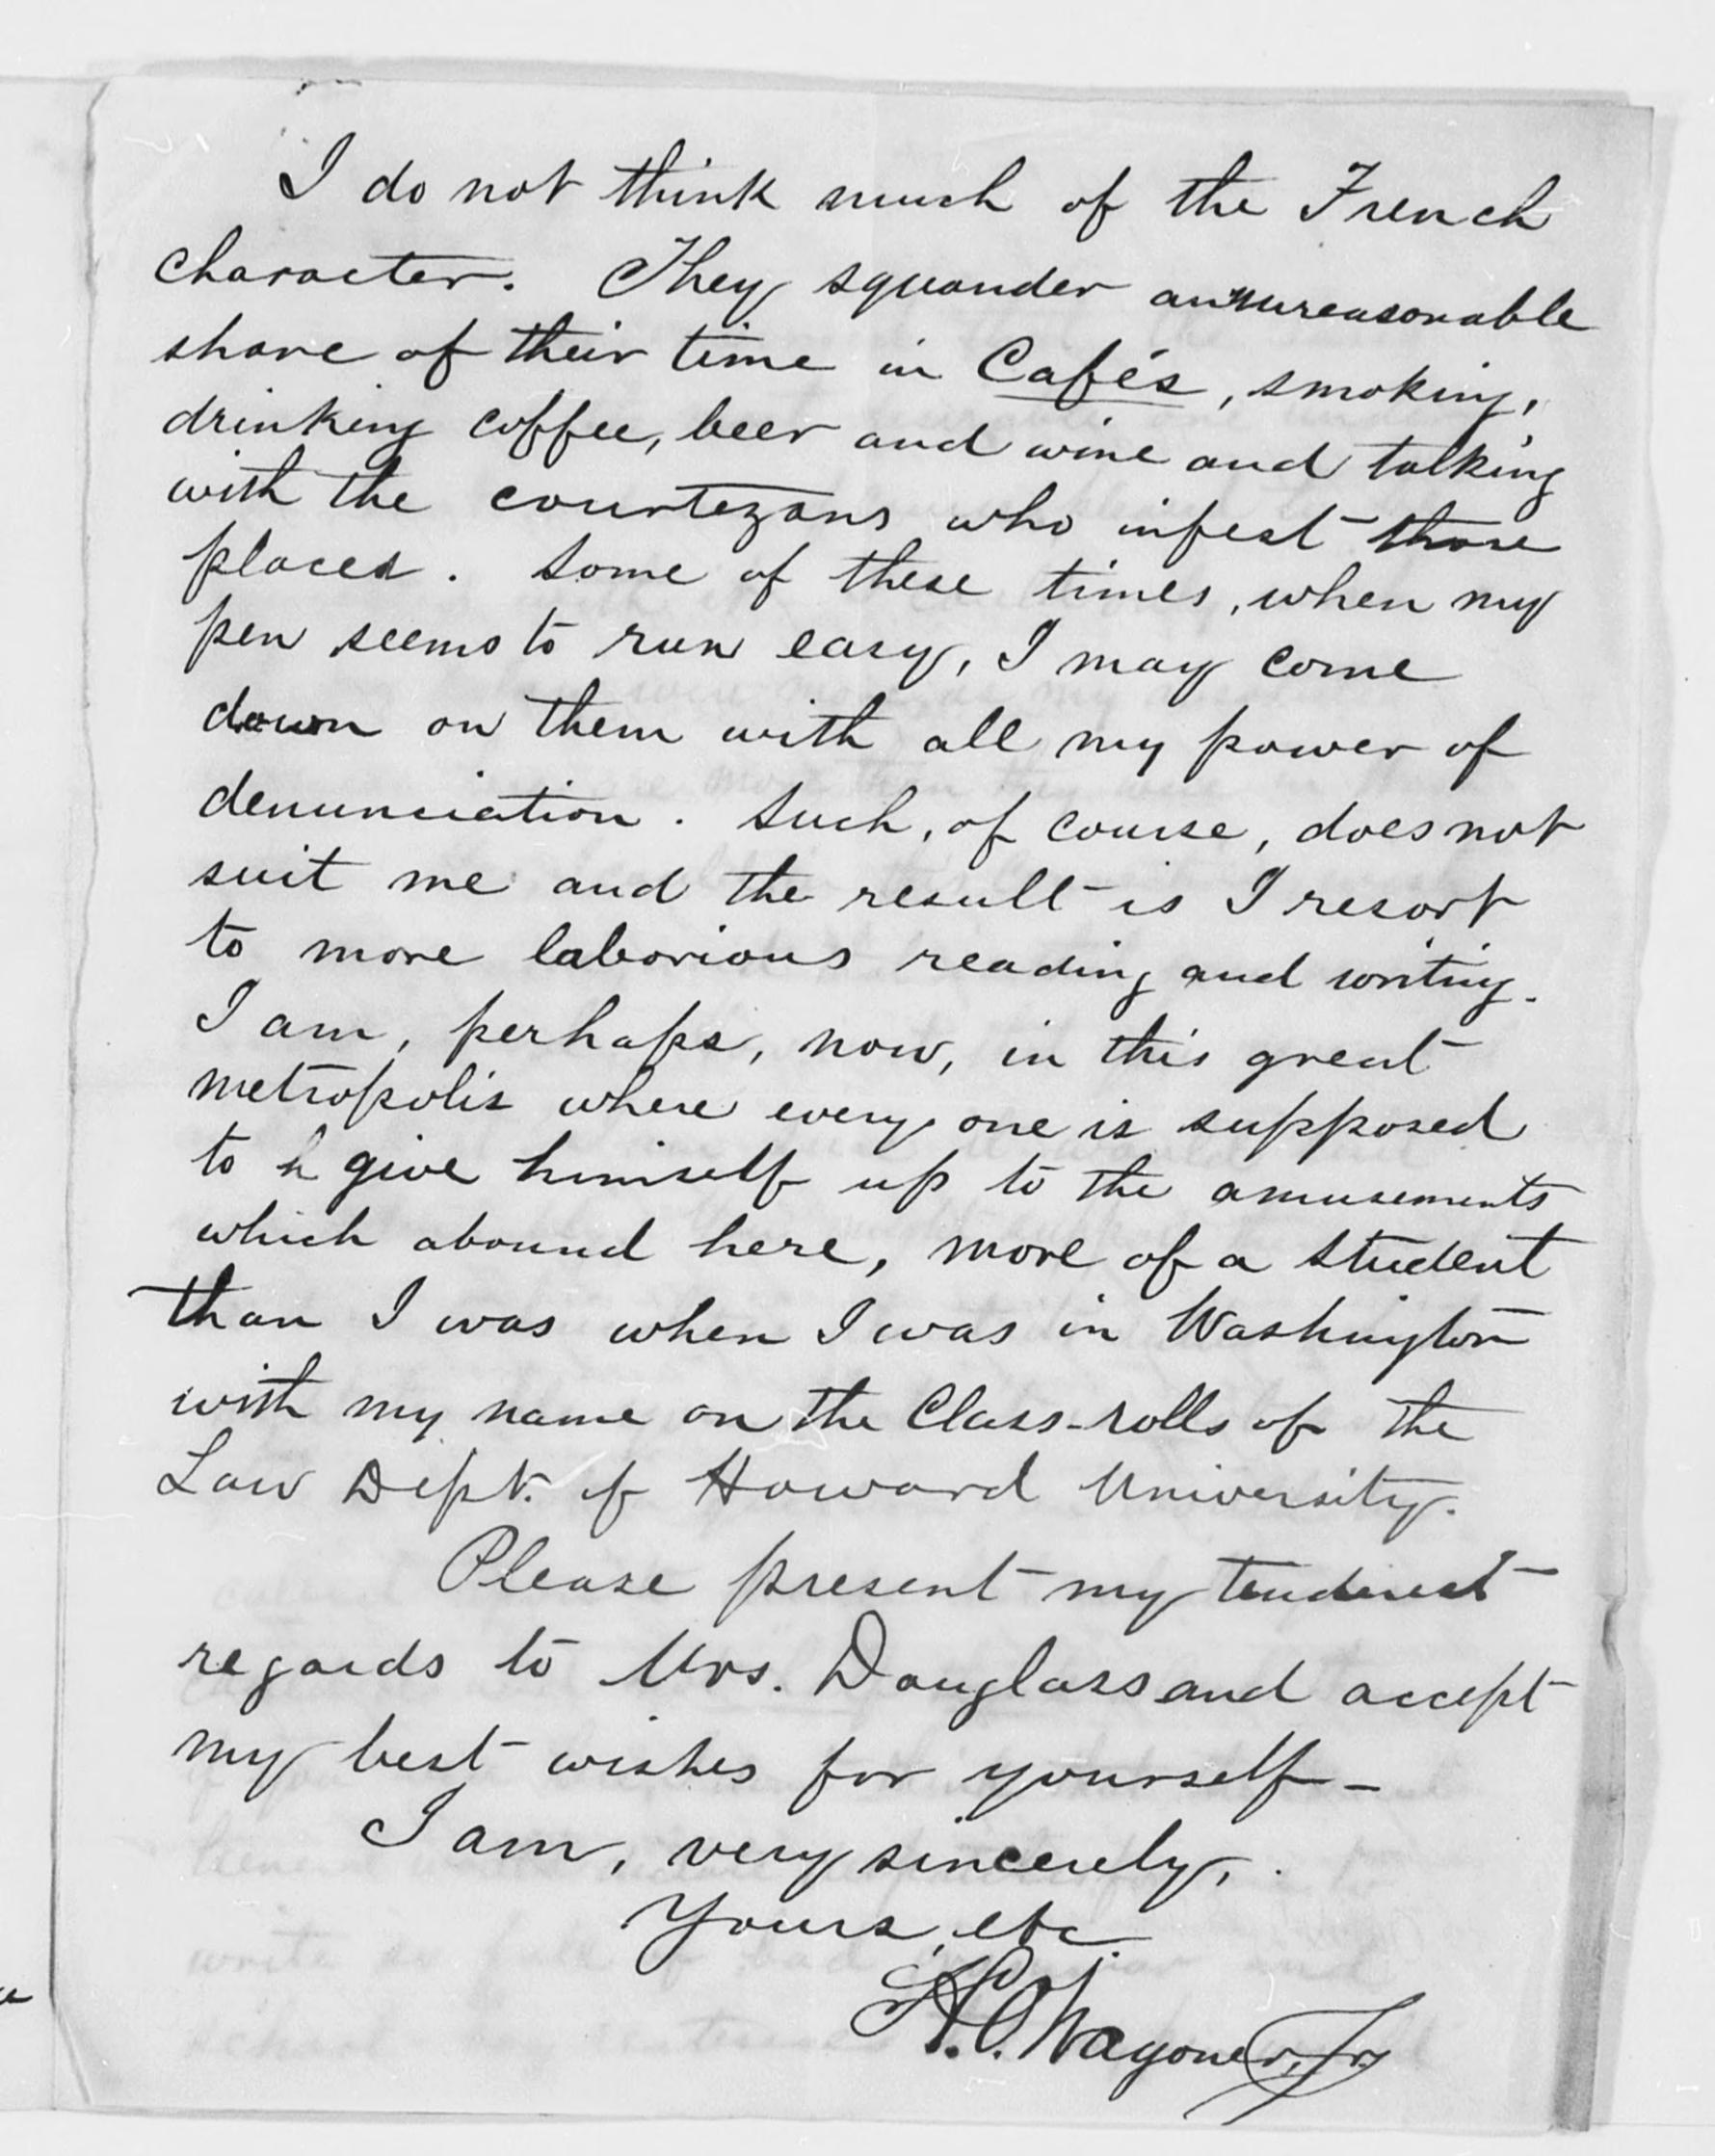 I do not think much of the French
character. They squander an unreasonable
share of their time in Cafés, smoking,
drinking coffee, beer and wine and talking
with the courtezans who infest those
places. Some of these times, when my
pen seems to run easy, I may come
down on them with all my power of
denunciation. Such, of course, does not
suit me and the result is I resort
to more laborious reading and writing.
I am, perhaps, now, in this great
metropolis where every one is supposed
to h give himself up to the amusements
which abound here, more of a student
than I was when I was in Washington
with my name on the Class-rolls of the
Law Dept. of Howard University.
Please present my tenderest
regards to Mrs. Douglass and accept
my best wishes for yourself -
I am, very sincerely,
Yours, etc.
H.O. Wagoner, Jr.